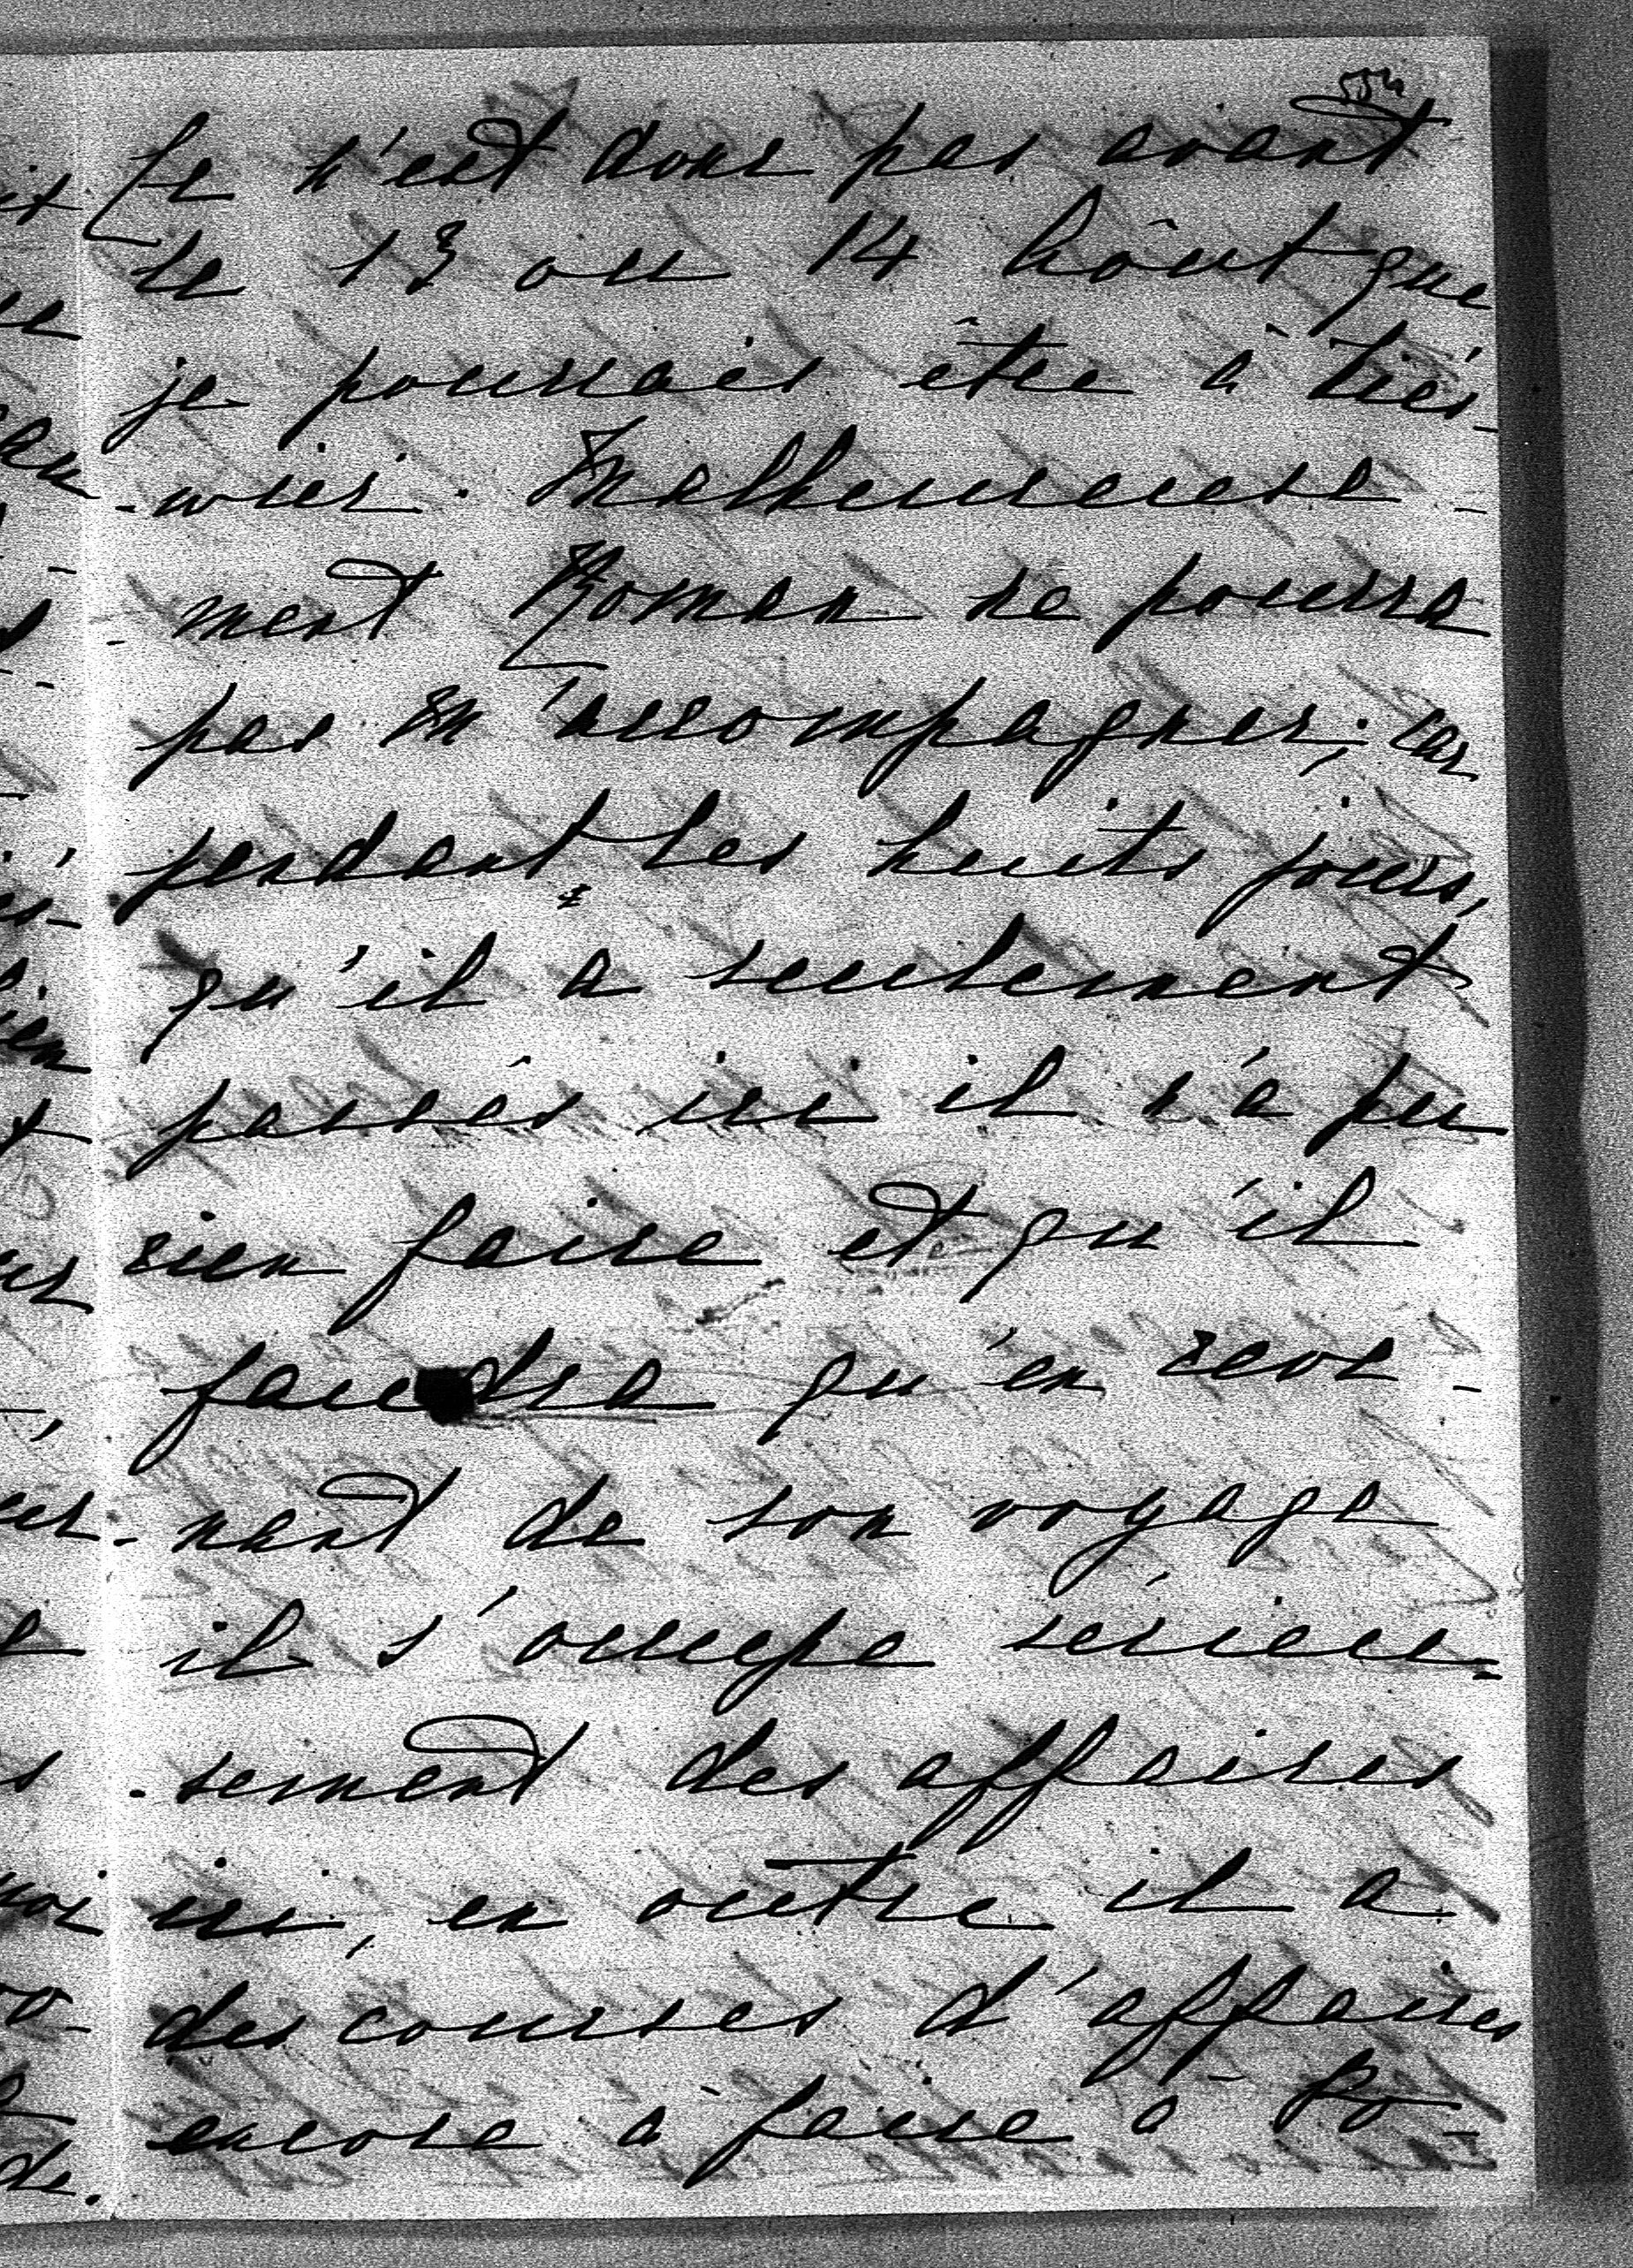 Ce n'est donc pas avant
le 13 ou 14 Août que
je pourrais être à Liés-
-wier. Malheureuse-
-ment Roman ne pourra
pas m'accompagner; car
pendant les huits jours,
qu'il a seulement
passés ici il n'a pu
rien faire et qu'il
faudra qu'en reve-
-nant de son voyage
il s'occupe sérieu-
-sement des affaires
ici, en outre il a
des courses d'affaires
encore à faire à Po-